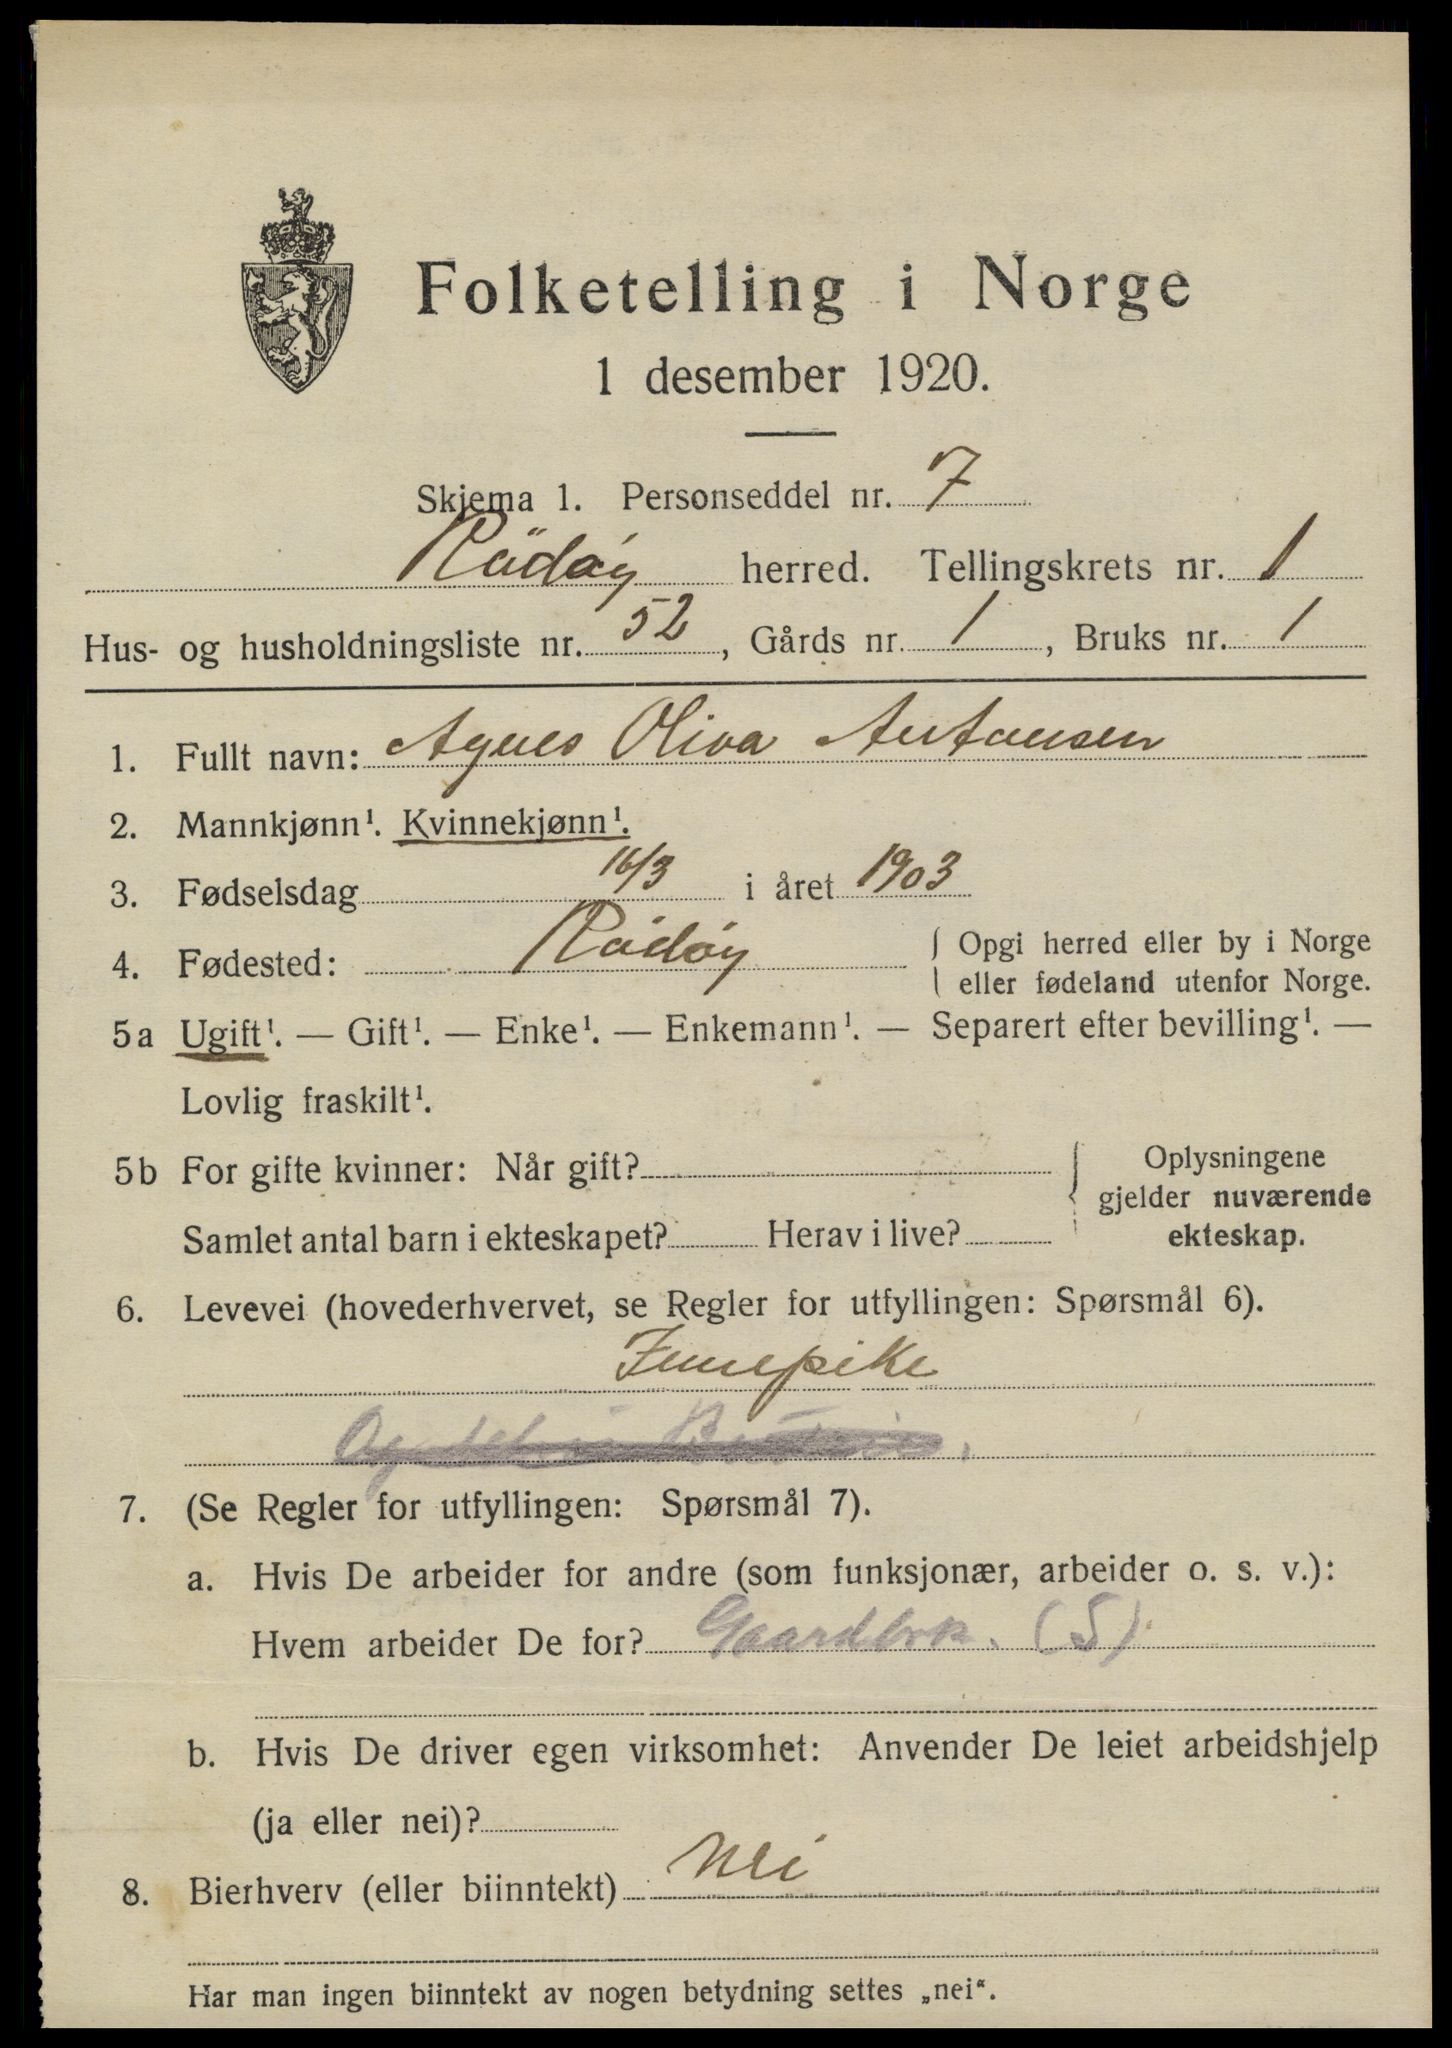 Folketelling i Norge
1 desember 1920.
Skjema 1. Personseddel nr. 7
Rödøy herred. Tellingskrets nr. 1
Hus- og husholdningsliste nr. 52, Gårds nr. 1, Bruks nr. 1
1. Fullt navn: Agnes Oliva Antonsen
2. Mannkjønn¹. Kvinnekjønn¹.
3. Fødselsdag 16/3 i året 1903
4. Fødested: Rödøy { Opgi herred eller by i Norge
eller fødeland utenfor Norge.
5a Ugift¹. — Gift¹. — Enke¹. — Enkemann¹. — Separert efter bevilling¹. —
Lovlig fraskilt¹.
5b For gifte kvinner: Når gift? { Oplysningene
gjelder nuværende
Samlet antal barn i ekteskapet? Herav i live? ekteskap.
6. Levevei (hovederhvervet, se Regler for utfyllingen: Spørsmål 6).
Innepike
7. (Se Regler for utfyllingen: Spørsmål 7).
a. Hvis De arbeider for andre (som funksjonær, arbeider o. s. v.):
Hvem arbeider De for? Gaardbrk. (S)
b. Hvis De driver egen virksomhet: Anvender De leiet arbeidshjelp
(ja eller nei)?
8. Bierhverv (eller biinntekt) Nei
Har man ingen biinntekt av nogen betydning settes „nei“.